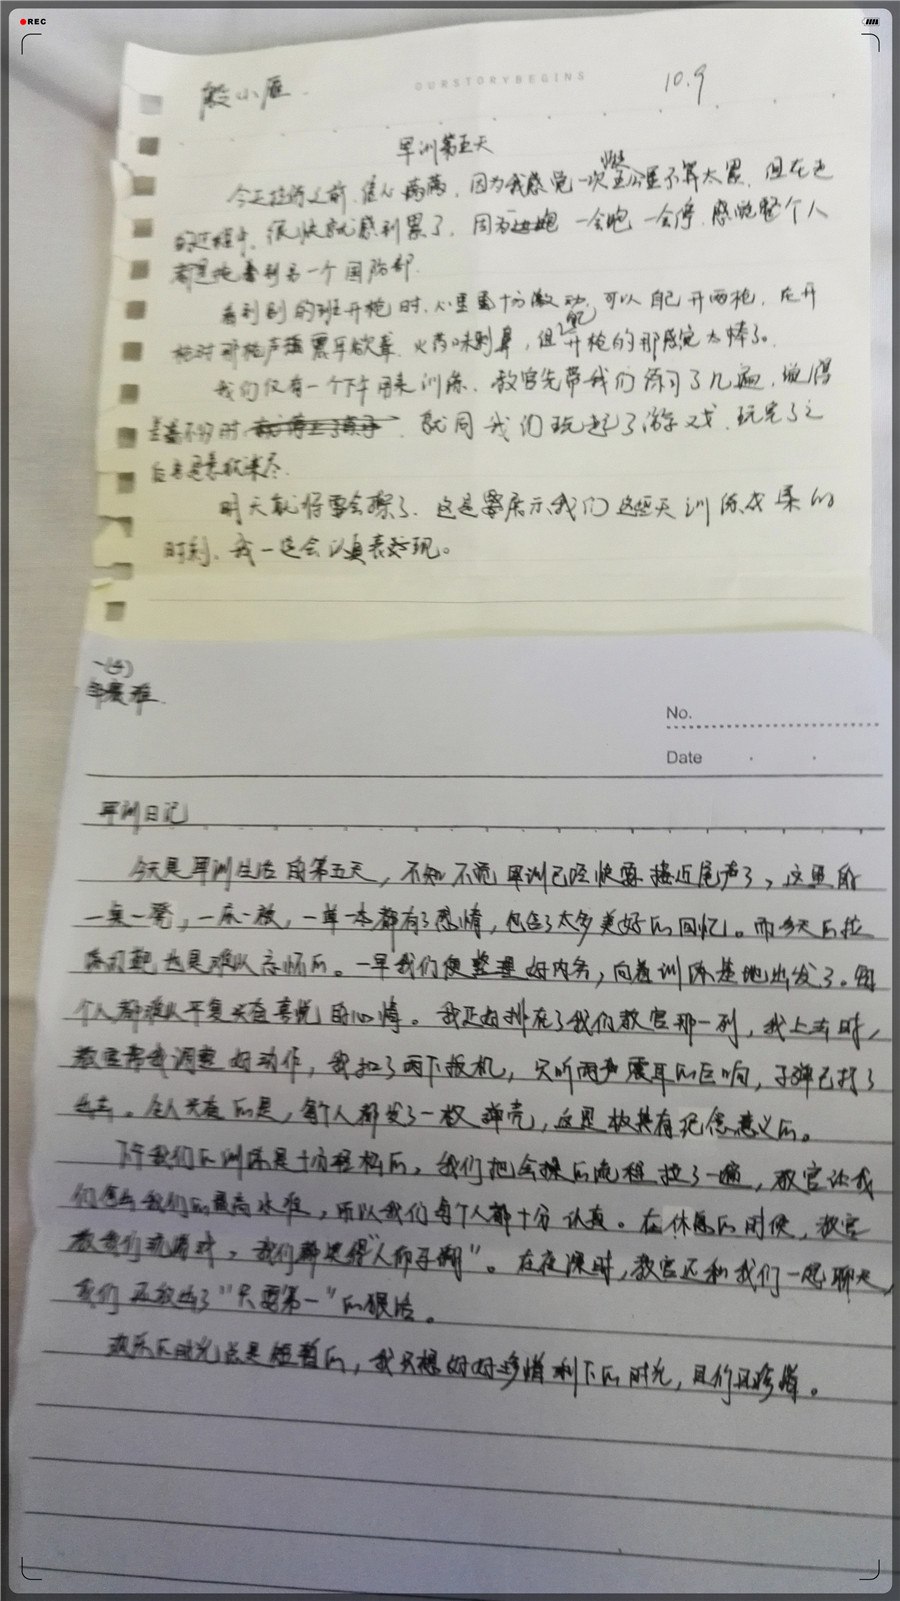 REC
OURSTORYBEGINS
10.9
军训第五天
今天拉练之前,信心满满,因为我感觉一次 公里不算太累,但在
的过程中,很快就感到累了,因为 一会跑一会停,感觉整个人
看到另一个国防部.
看到别的班开枪时,心里 十分激动,可以自己开两枪,在开
枪时那枪声 震耳欲聋,火药味刺鼻,但 开枪的那感觉太棒了。
我们仅有一个下午用来训练,教官先带我们练习了几遍,觉得
差不多时, 就同我们玩起了游戏,玩完了之
后
明天就将要会操了,这是要展示我们这些天训练成果的
时刻,我一定会认真表现。
一(4)
No.
Date
军训日记
今天是军训生活的第五天,不知不觉军训已经快要接近尾声了,这里的
一桌一凳,一床一被,一草一木都有了感情,包含了太多美好的回忆。而今天的拉
练打靶也是难以忘怀的。一早我们便整理好内务,向着训练基地出发了。每
个人都难以平复兴奋喜悦的心情。我正好排在了我们教官那一列,我上去时,
教官帮我调整好动作,我扣了两下扳机,只听两声震耳的巨响,子弹已打了
出去。令人兴奋的是,每个人都发了一枚弹壳,这是极具有纪念意义的。
下午我们的训练是十分轻松的。我们把会操的流程拉了一遍,教官让我
们 我们的最高水准,所以我们每个人都十分认真。在休息的时候,教官
教我们玩游戏,我们都 "人仰马翻"。在夜深时,教官还和我们一起聊天,
我们 放出了"只要第一"的狠话。
快乐的时光总是短暂的,我只想好好珍惜剩下的时光,且行且珍惜。